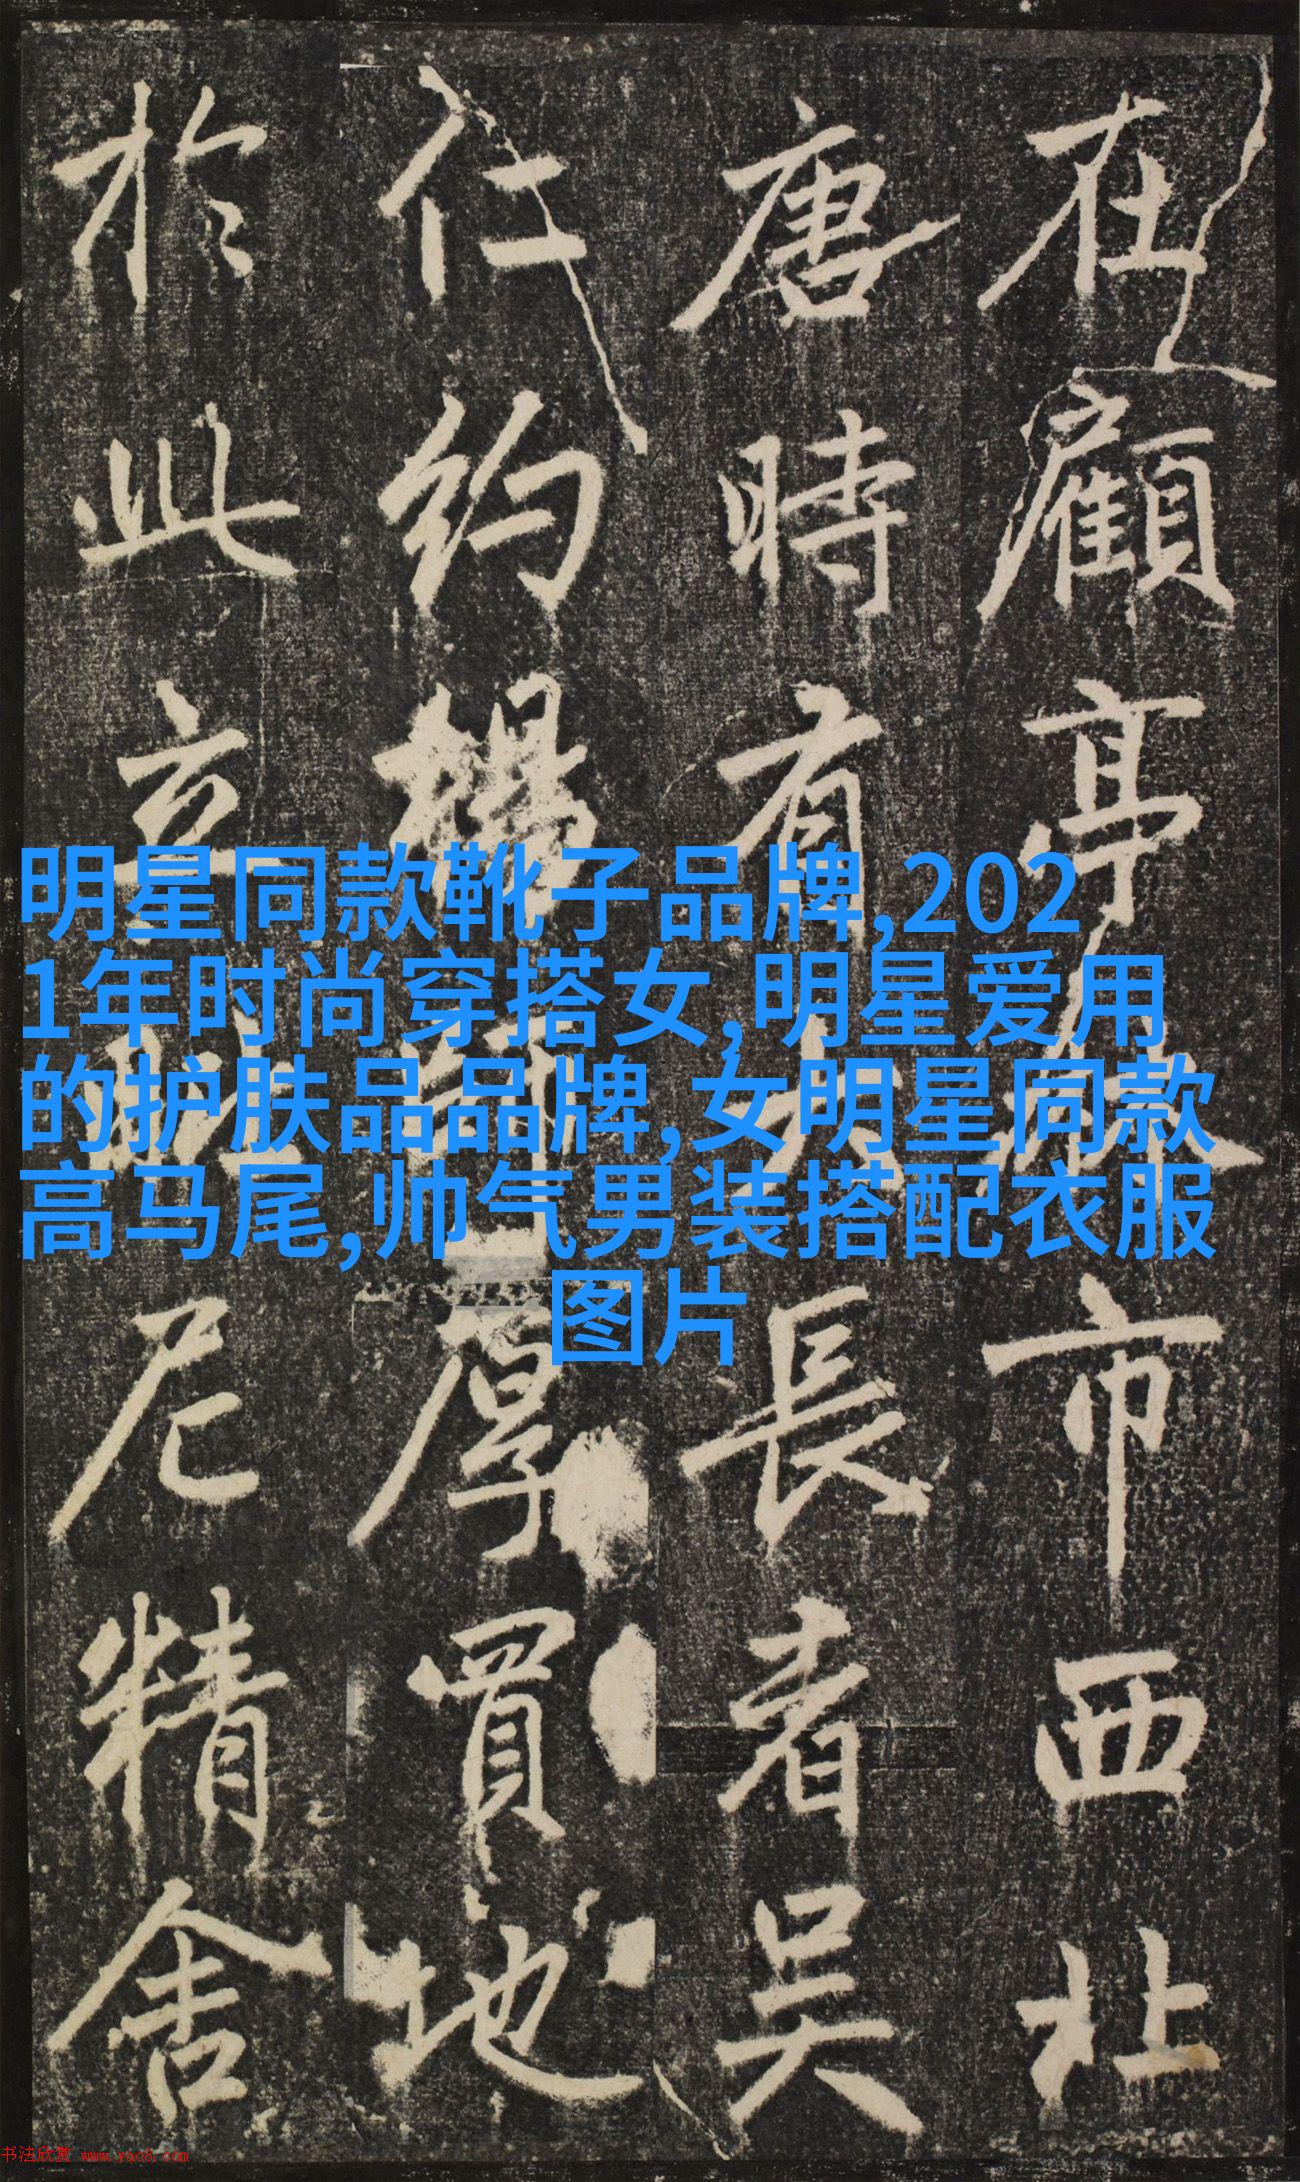 在顧亭林市西北
唐時有大長者吳
仁約 厚買地
於此立 尼精舍
明星同款靴子品牌,202
1年时尚穿搭女,明星爱用
的护肤品品牌,女明星同款
高马尾,帅气男装搭配衣服
图片
书法欣赏 www.yac8.com